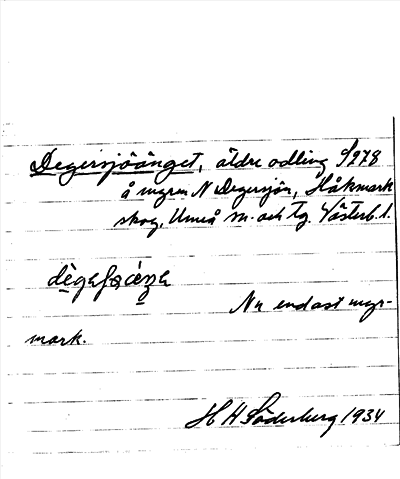 Degersjöänget, äldre odling S278
å myren N Degersjön, Håkmark
skog, Umeå sn. och tg. Västerb. l.
Nu endast myr-
mark.
H H Söderberg 1934